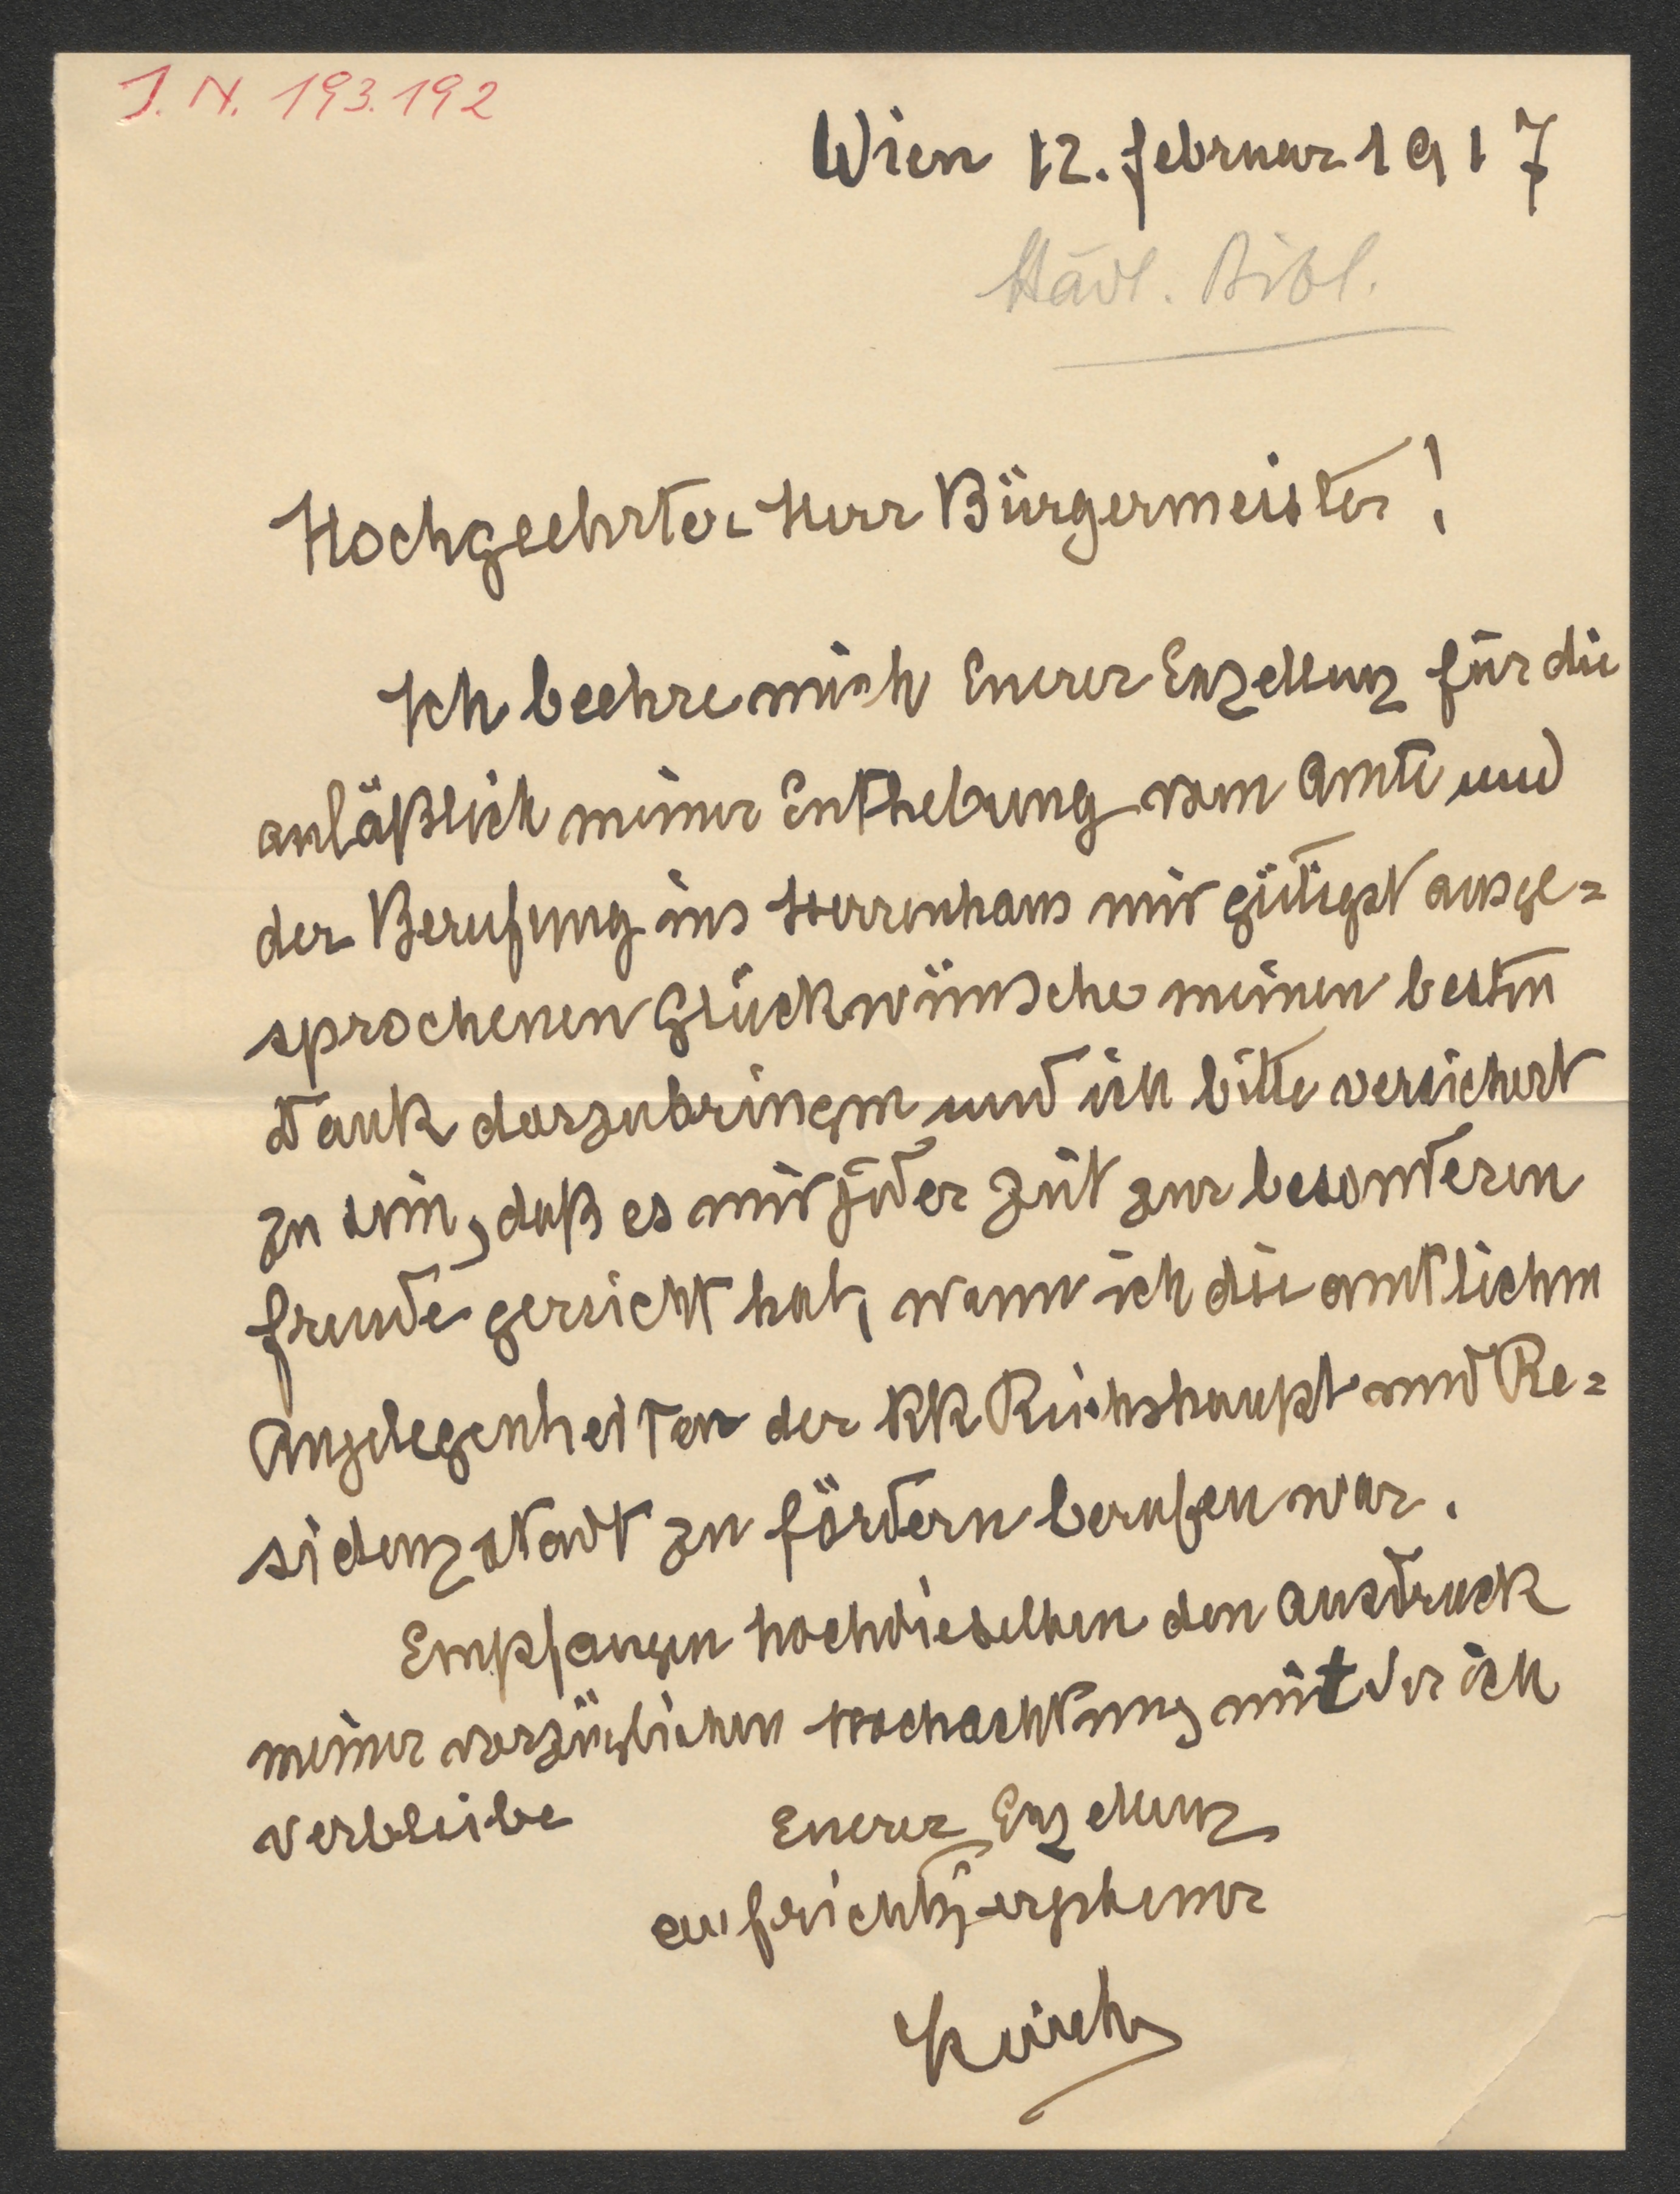 J. N. 193.192
Wien 12. Februar 1917
Städt. Bibl.
Hochgeehrter Herr Bürgermeister!
Ich beehre mich Euerer Exzellenz für die
anläßlich meiner Enthebung vom Amte und
der Berufung ins Herrenhaus mir gütigst ausge=
sprochenen Glückwünsche meinen besten
Dank darzubringen und ich bitte versichert
zu sein, daß es mir jeder Zeit zur besonderen
Freude gereicht hat, wann ich die amtlichen
Angelegenheiten der KK Reichshaupt und Re=
sidenzstadt zu fördern berufen war.
Empfangen hochdieselben den Ausdruck
meiner vorzüglichen Hochachtung mit der ich
verbleibe Euerer Exzellenz
aufrichtig ergebener